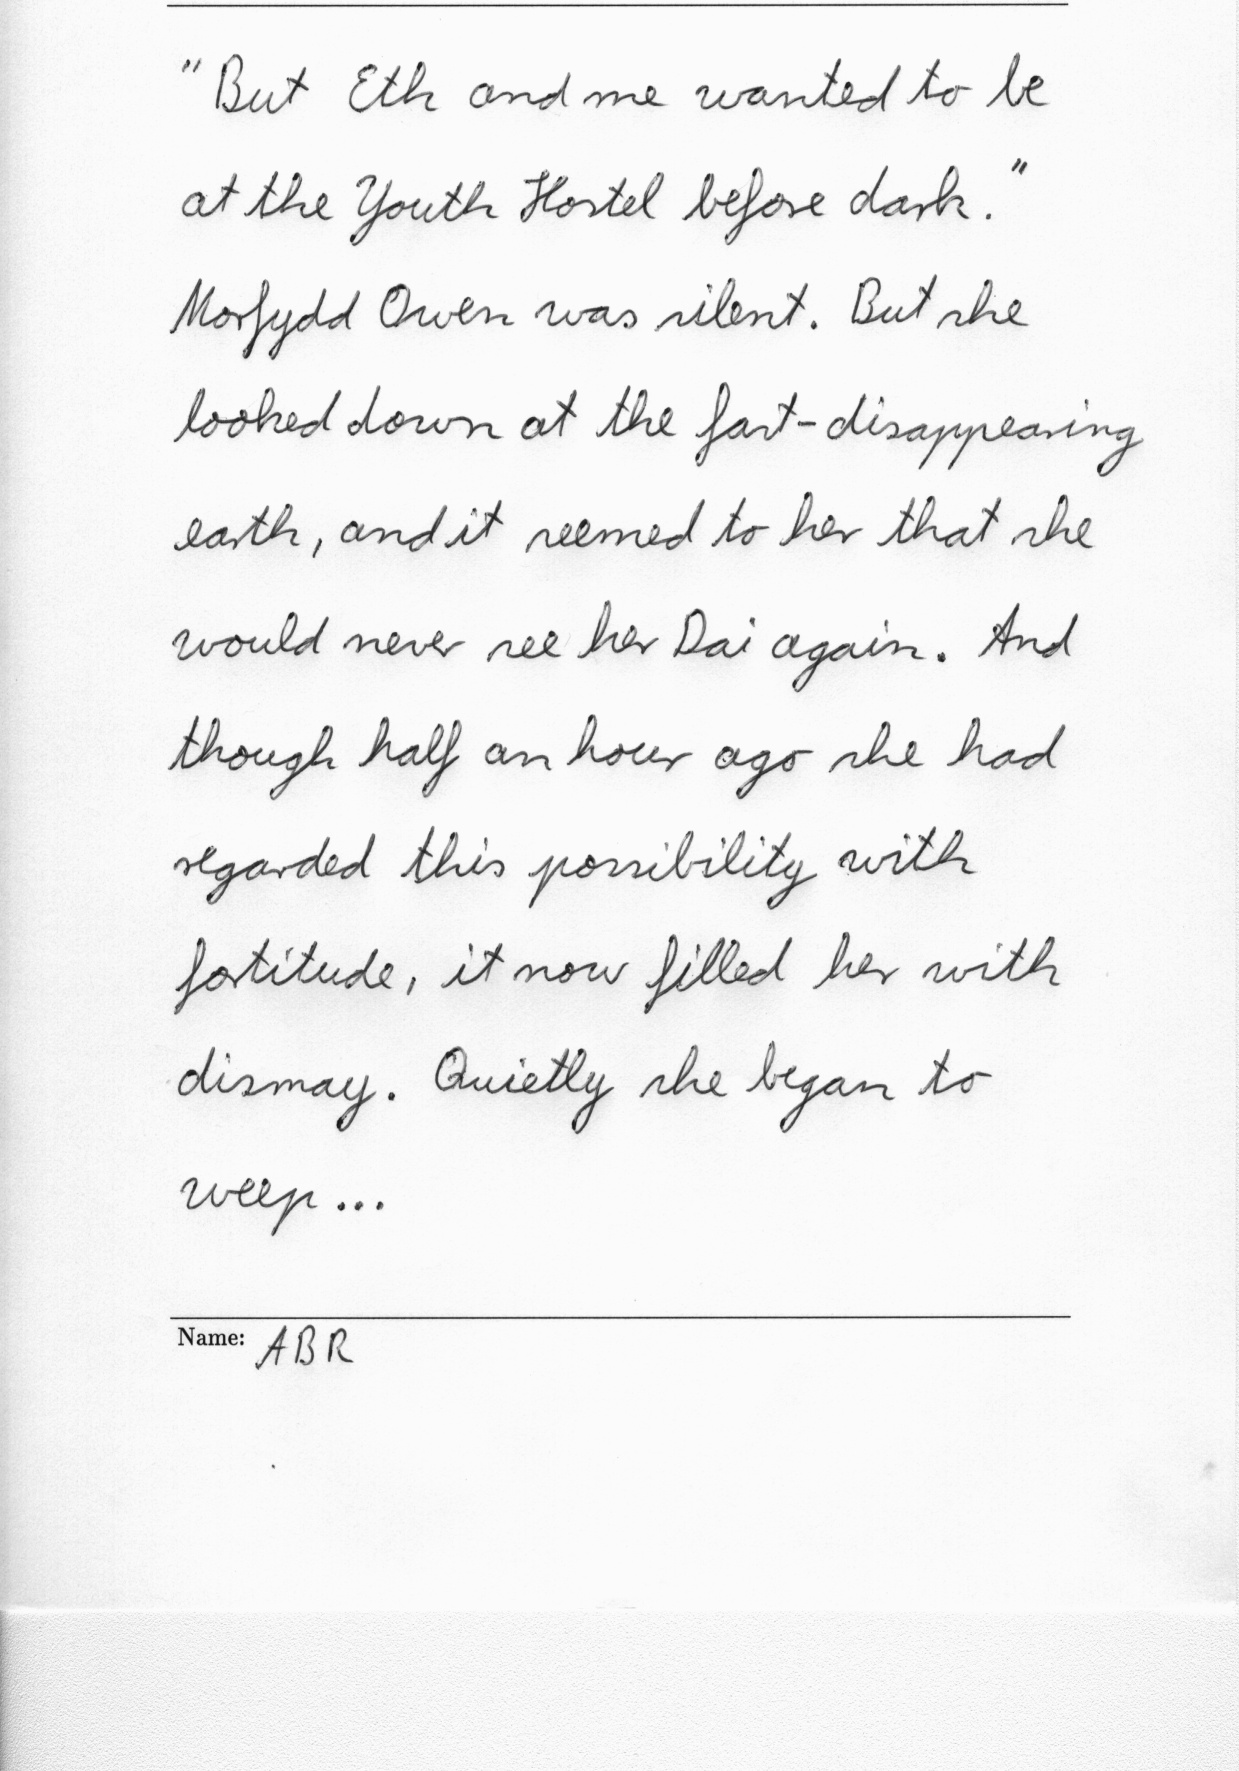 "But Eth and me wanted to be
at the Youth Hostel before dark."
Morfydd Owen was silent. But she
looked down at the fast-disappearing
earth, and it seemed to her that she
would never see her Dai again. And
though half an hour ago she had
regarded this possibility with
fortitude, it now filled her with
dismay. Quietly she began to
weep...
Name: ABR